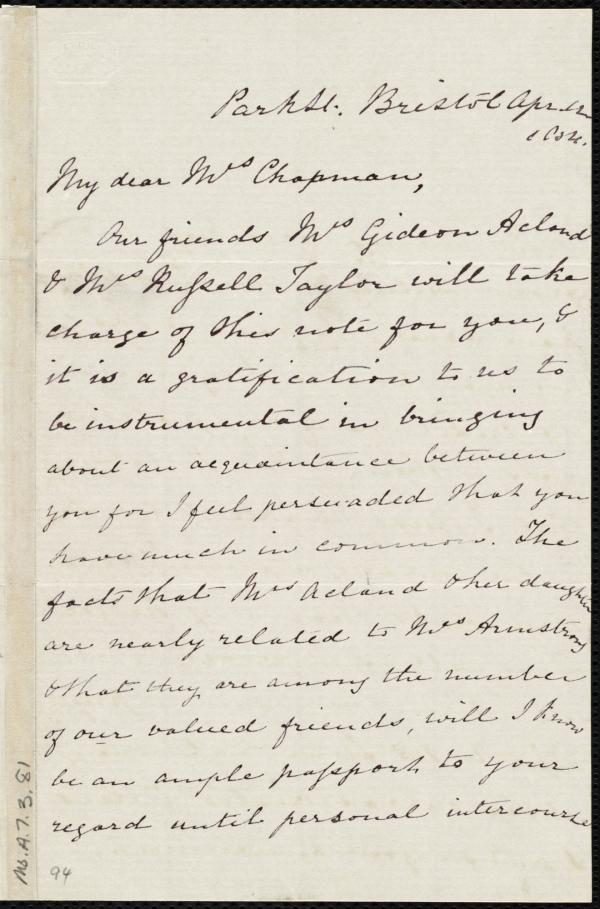 Park St. Bristol Apr. 12
My dear Mrs Chapman,
Our friends Mrs Gideon Acland
& Mrs Russell Taylor will take
charge of this note for you, &
it is a gratification to us to
be instrumental in bringing
about an acquaintance between
you for I feel persuaded that you
have much in common. The
facts that Mrs Acland & her daughter
are nearly related to Mrs Armstrong
& that they are among the number
of our valued friends, will I know
be an ample passport to your
regard until personal intercourse
Ms.A.7.3.81
94